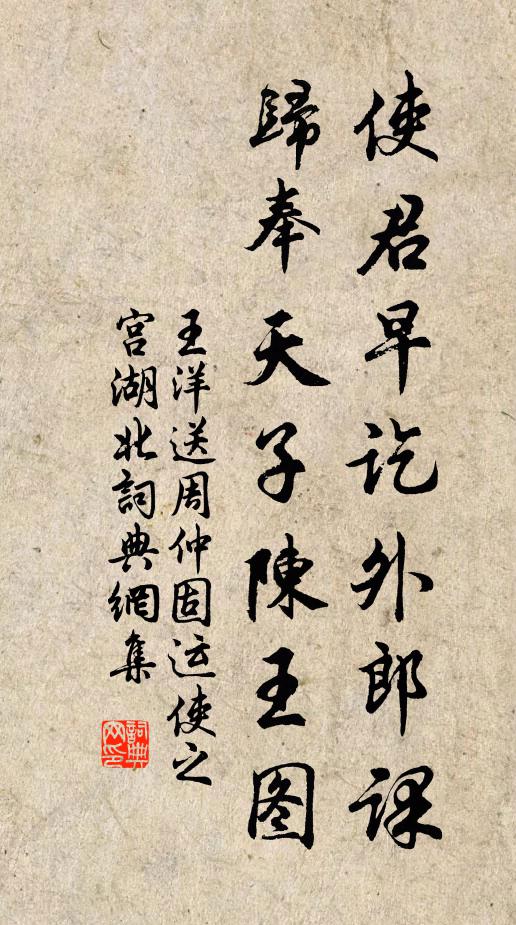 使君早訖外郎課
歸奉天子陳王图
王洋送周仲固运使之
宫湖北詞典網集
詞典网印